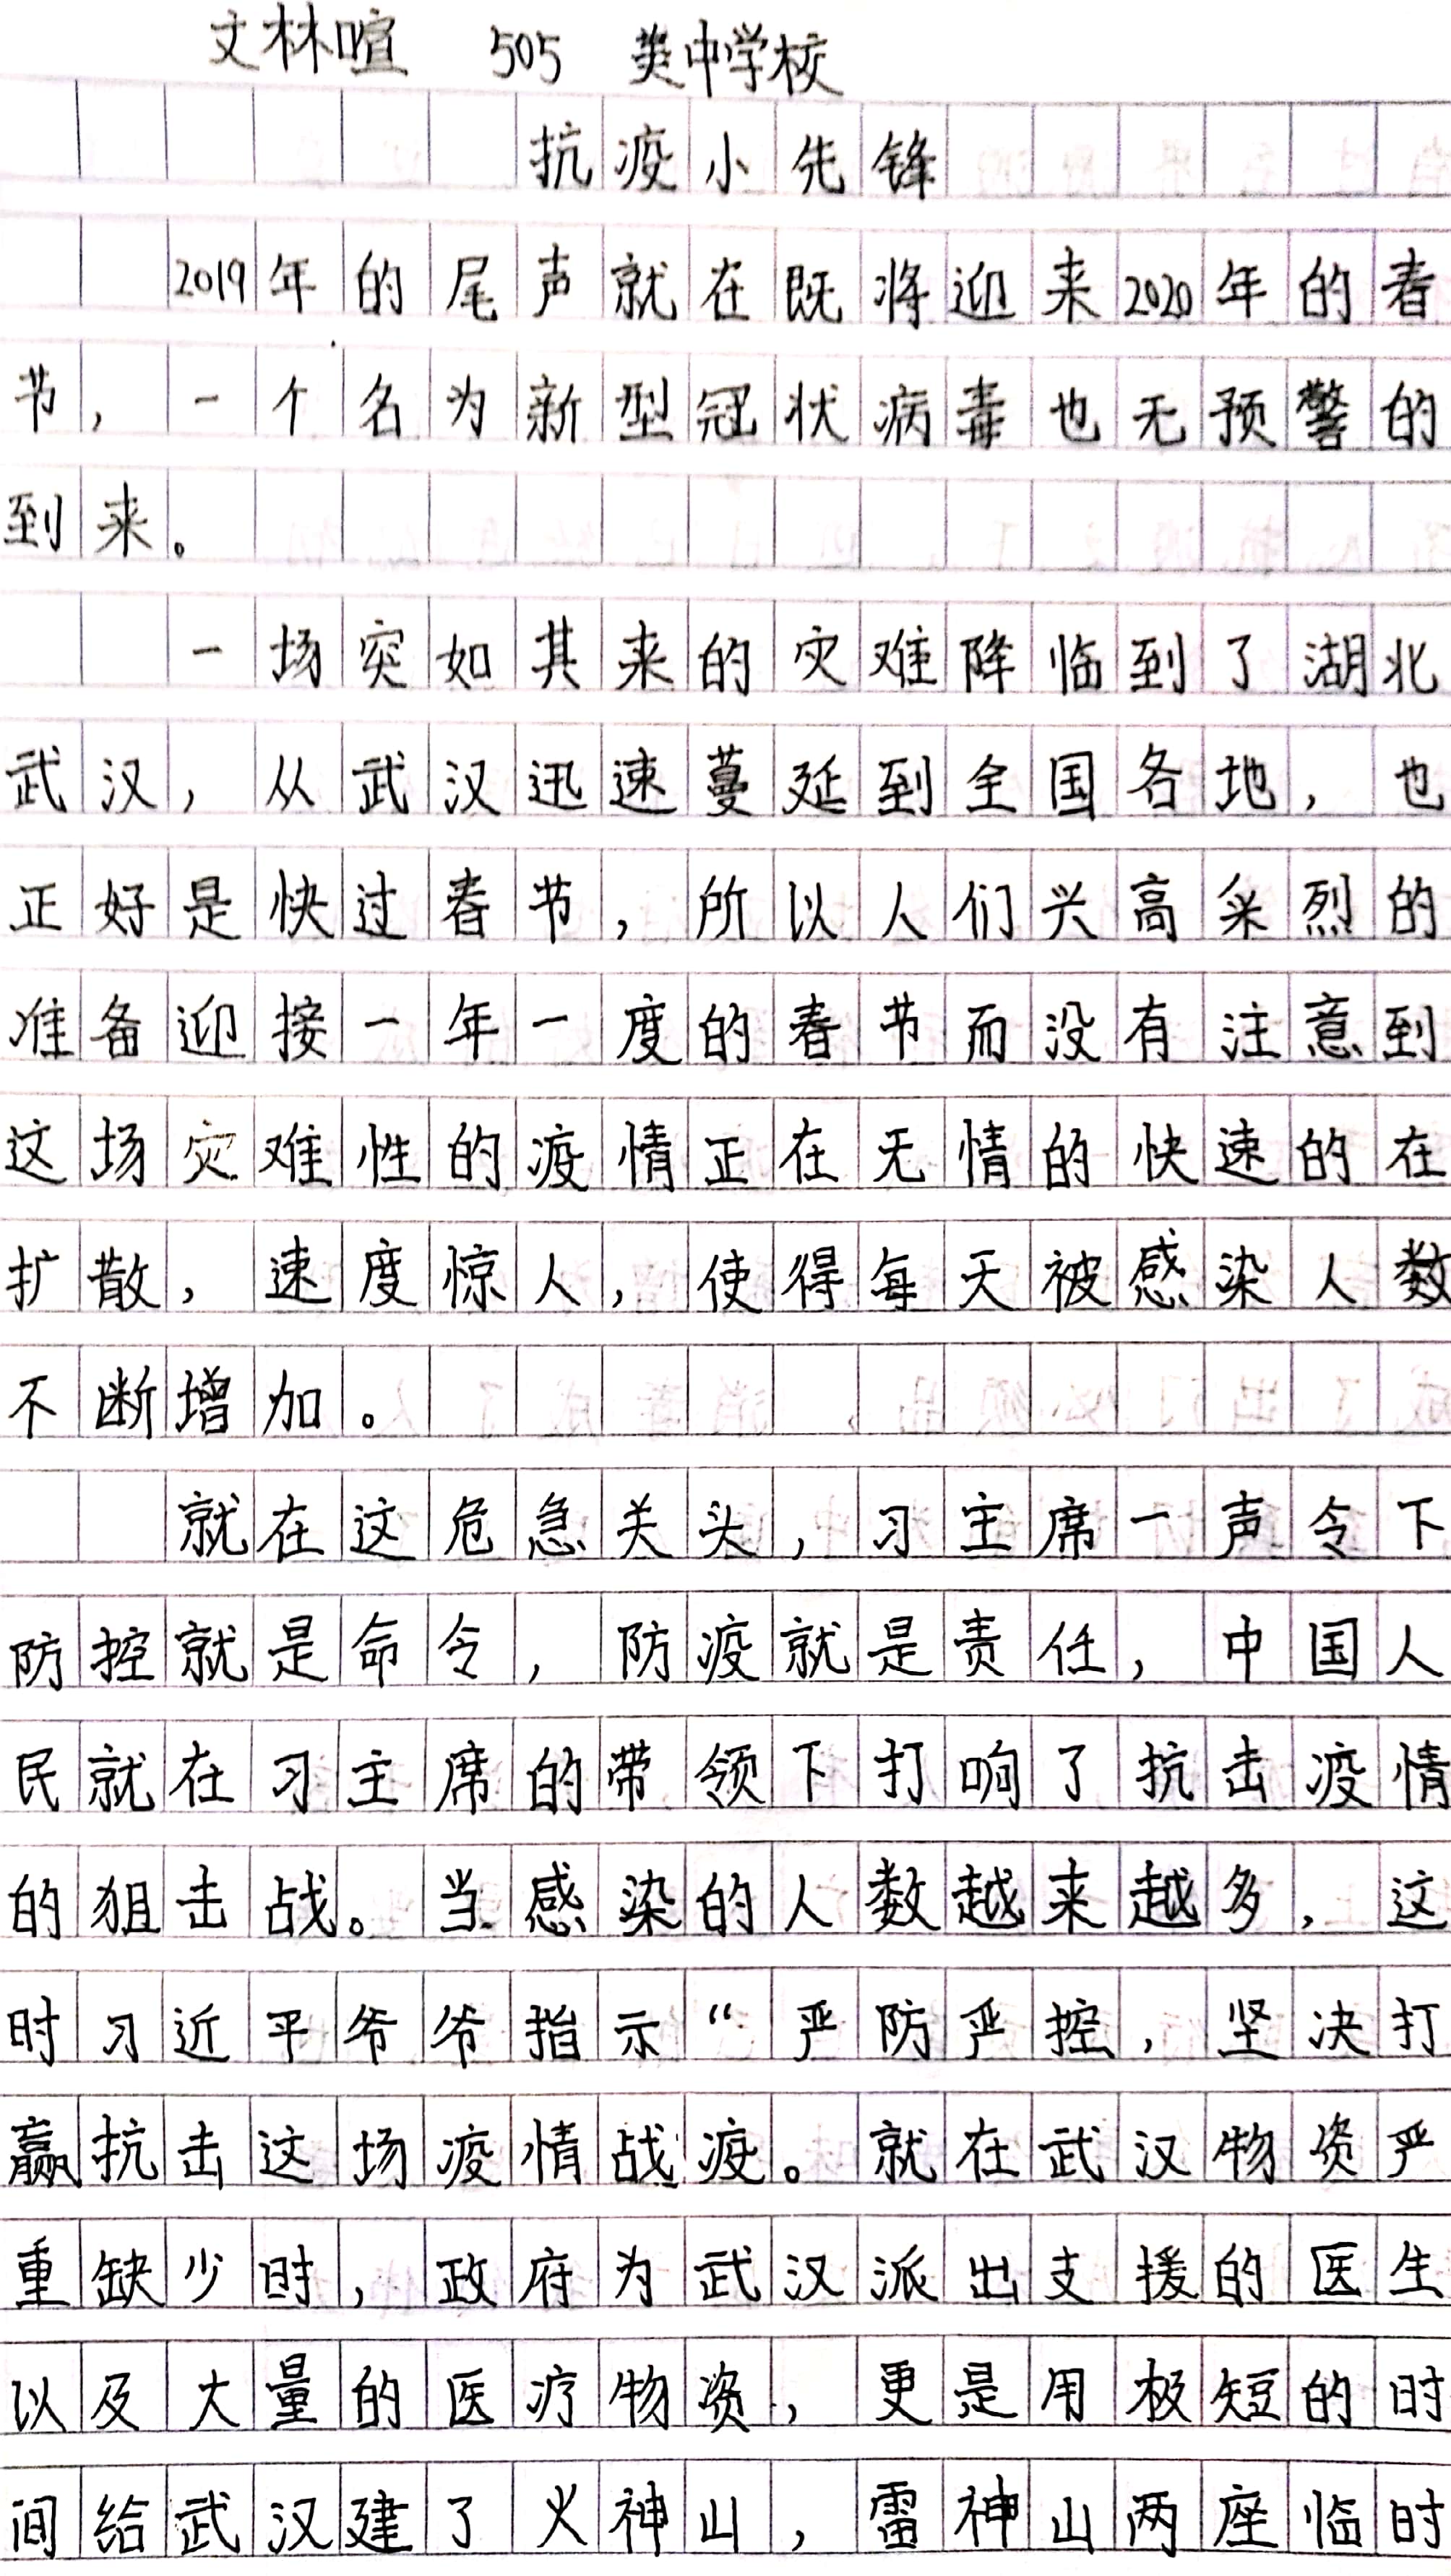 文林喧 505 英中学校
抗疫小先锋
2019年的尾声就在既将迎来2020年的春
节，一个名为新型冠状病毒也无预警的
到来。
一场突如其来的灾难降临到了湖北
武汉，从武汉迅速蔓延到全国各地，也
正好是快过春节，所以人们兴高采烈的
准备迎接一年一度的春节而没有注意到
这场灾难性的疫情正在无情的快速的在
扩散，速度惊人，使得每天被感染人数
不断增加。
就在这危急关头，习主席一声令下
防控就是命令，防疫就是责任，中国人
民就在习主席的带领下打响了抗击疫情
的狙击战。当感染的人数越来越多，这
时习近平爷爷指示“严防严控，坚决打
赢抗击这场疫情战疫。就在武汉物资严
重缺少时，政府为武汉派出支援的医生
以及大量的医疗物资，更是用极短的时
间给武汉建了火神山，雷神山两座临时